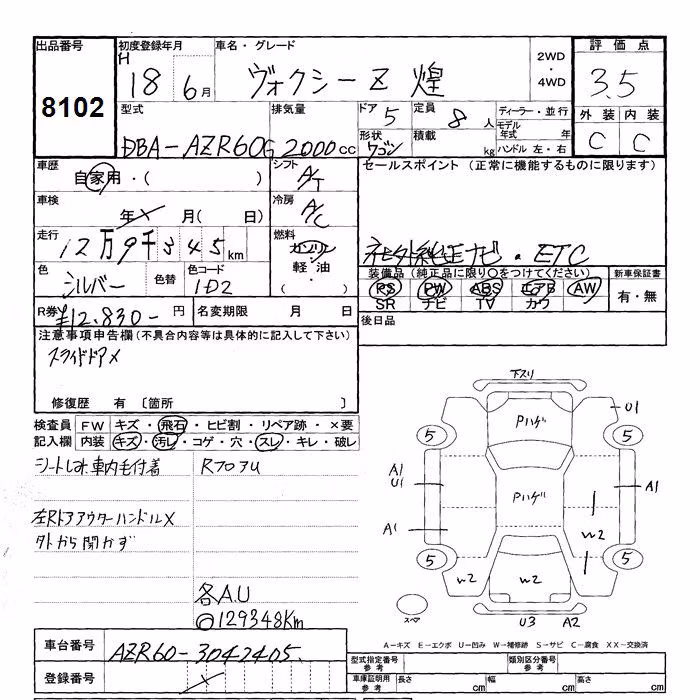 出品番号 初度登録年月 車名・グレード 評価点
8102 H 18 6月 ヴォクシーZ 煌 2WD ・ 4WD 3.5
型式 排気量 ドア 5 定員 8人 ディーラー・並行 外装 内装
DBA-AZR60G 2000cc 形状 ワゴン 積載 kg モデル年式 年 ハンドル 左・右 C C
車歴 自家用・( ) シフト A/T セールスポイント (正常に機能するものに限ります)
車検 年 月( 日) 冷房 A/C
走行 12万9千345km 燃料 ガソリン 軽油・ 社外純正ナビ・ETC
色 シルバー 色替 色コード 1D2 装備品(純正品に限り○をつけてください) 新車保証書
PS PW ABS エアB AW 有・無
SR ナビ TV カワ
R券 ¥12,830- 円 名変期限 月 日 後日品
注意事項申告欄(不具合内容等は具体的に記入して下さい)
スライドドア×
修復歴 有 〔箇所 〕
検査員 FW キズ・飛石・ヒビ割・リペア跡・×要
記入欄 内装 キズ・汚レ・コゲ・穴・スレ・キレ・破レ
シートしみ、車内毛付着 RフロアU
左Rドアアウターハンドル×
外から開かず
各A.U
@129348Km
下スリ
Pハゲ U1
5 5
A1
U1 Pハゲ A1
A1 W2
5 5
W2 W2
スペア U3 A2
A−キズ E−エクボ U−凹み W−補修跡 S−サビ C−腐食 XX−交換済
車台番号 AZR60-3042405 型式指定番号 参考 類別区分番号 参考
登録番号 車庫証明用 参考 長さ cm 幅 cm 高さ cm